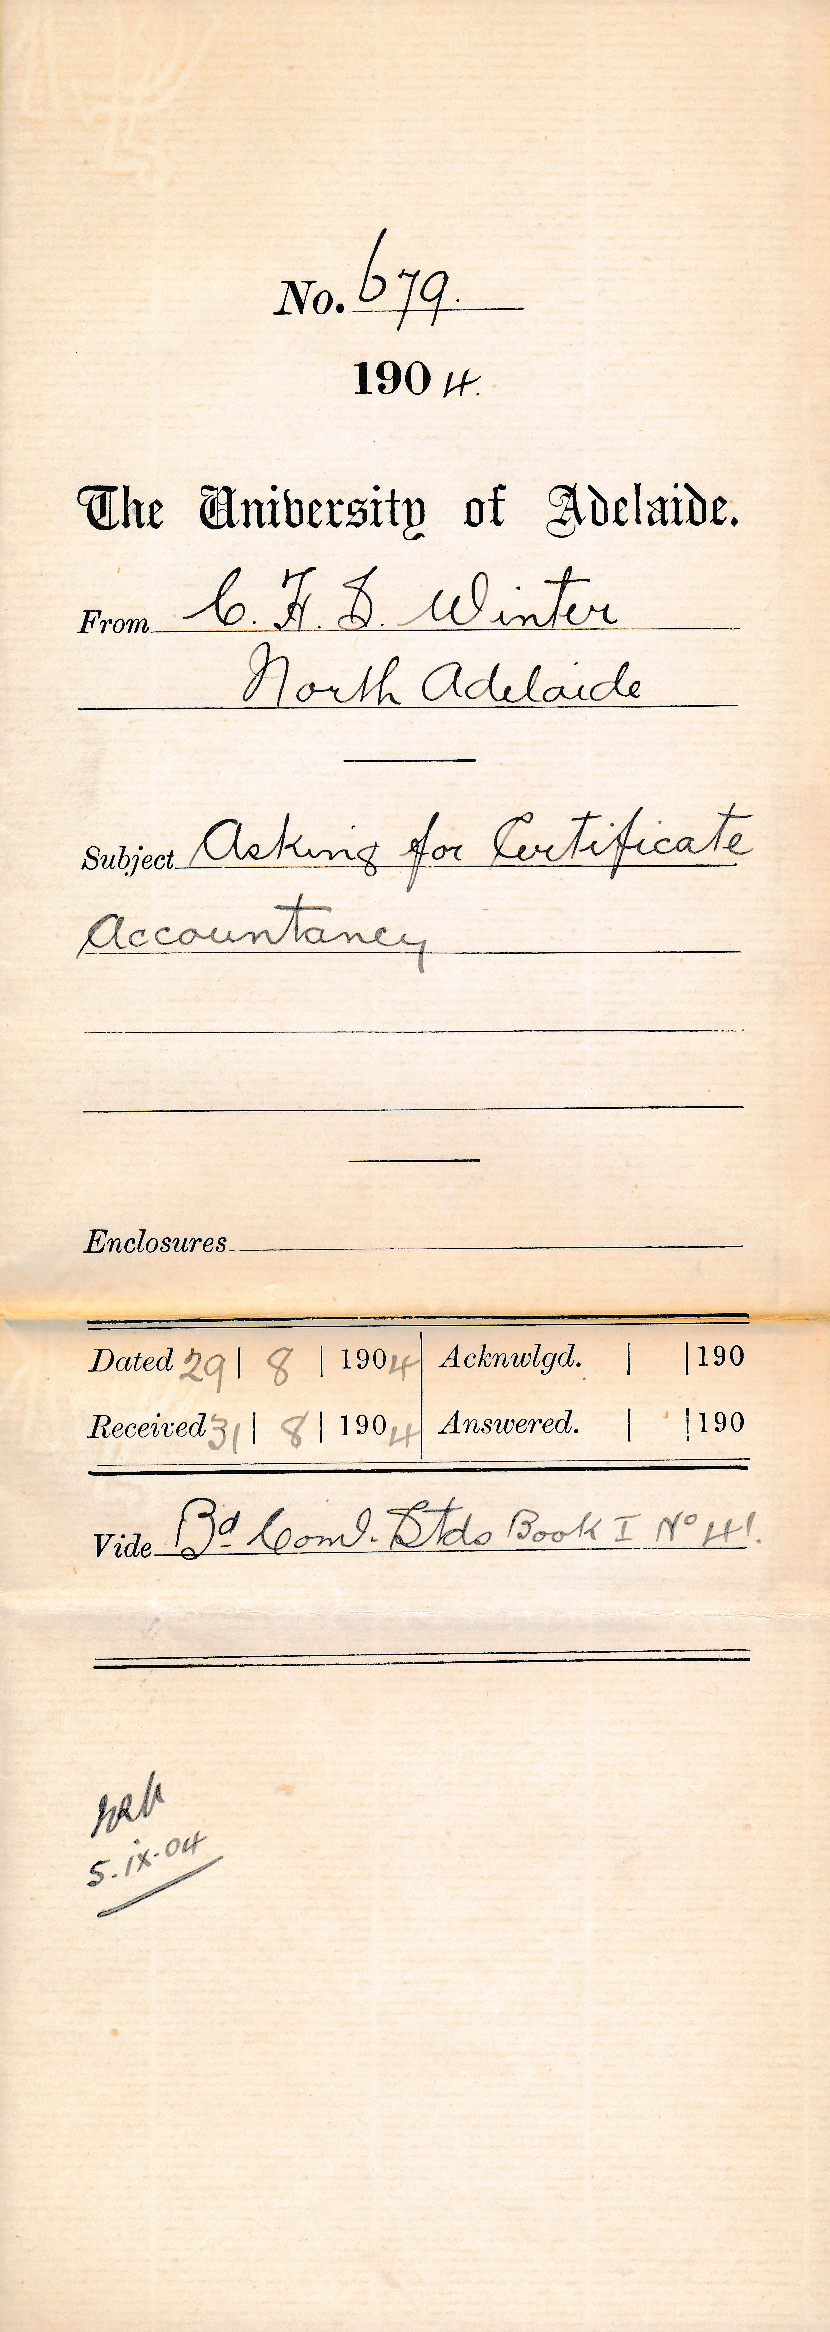 No. 679.
1904.
The University of Adelaide.
From C. F. D. Winter
North Adelaide
Subject Asking for Certificate
Accountancy
Enclosures
Dated 29 | 8 | 1904 Acknwlgd. | | 190
Received 31 | 8 | 1904 Answered. | | 190
Vide Bd Coml. Stds Book I No 41.
5.ix.04